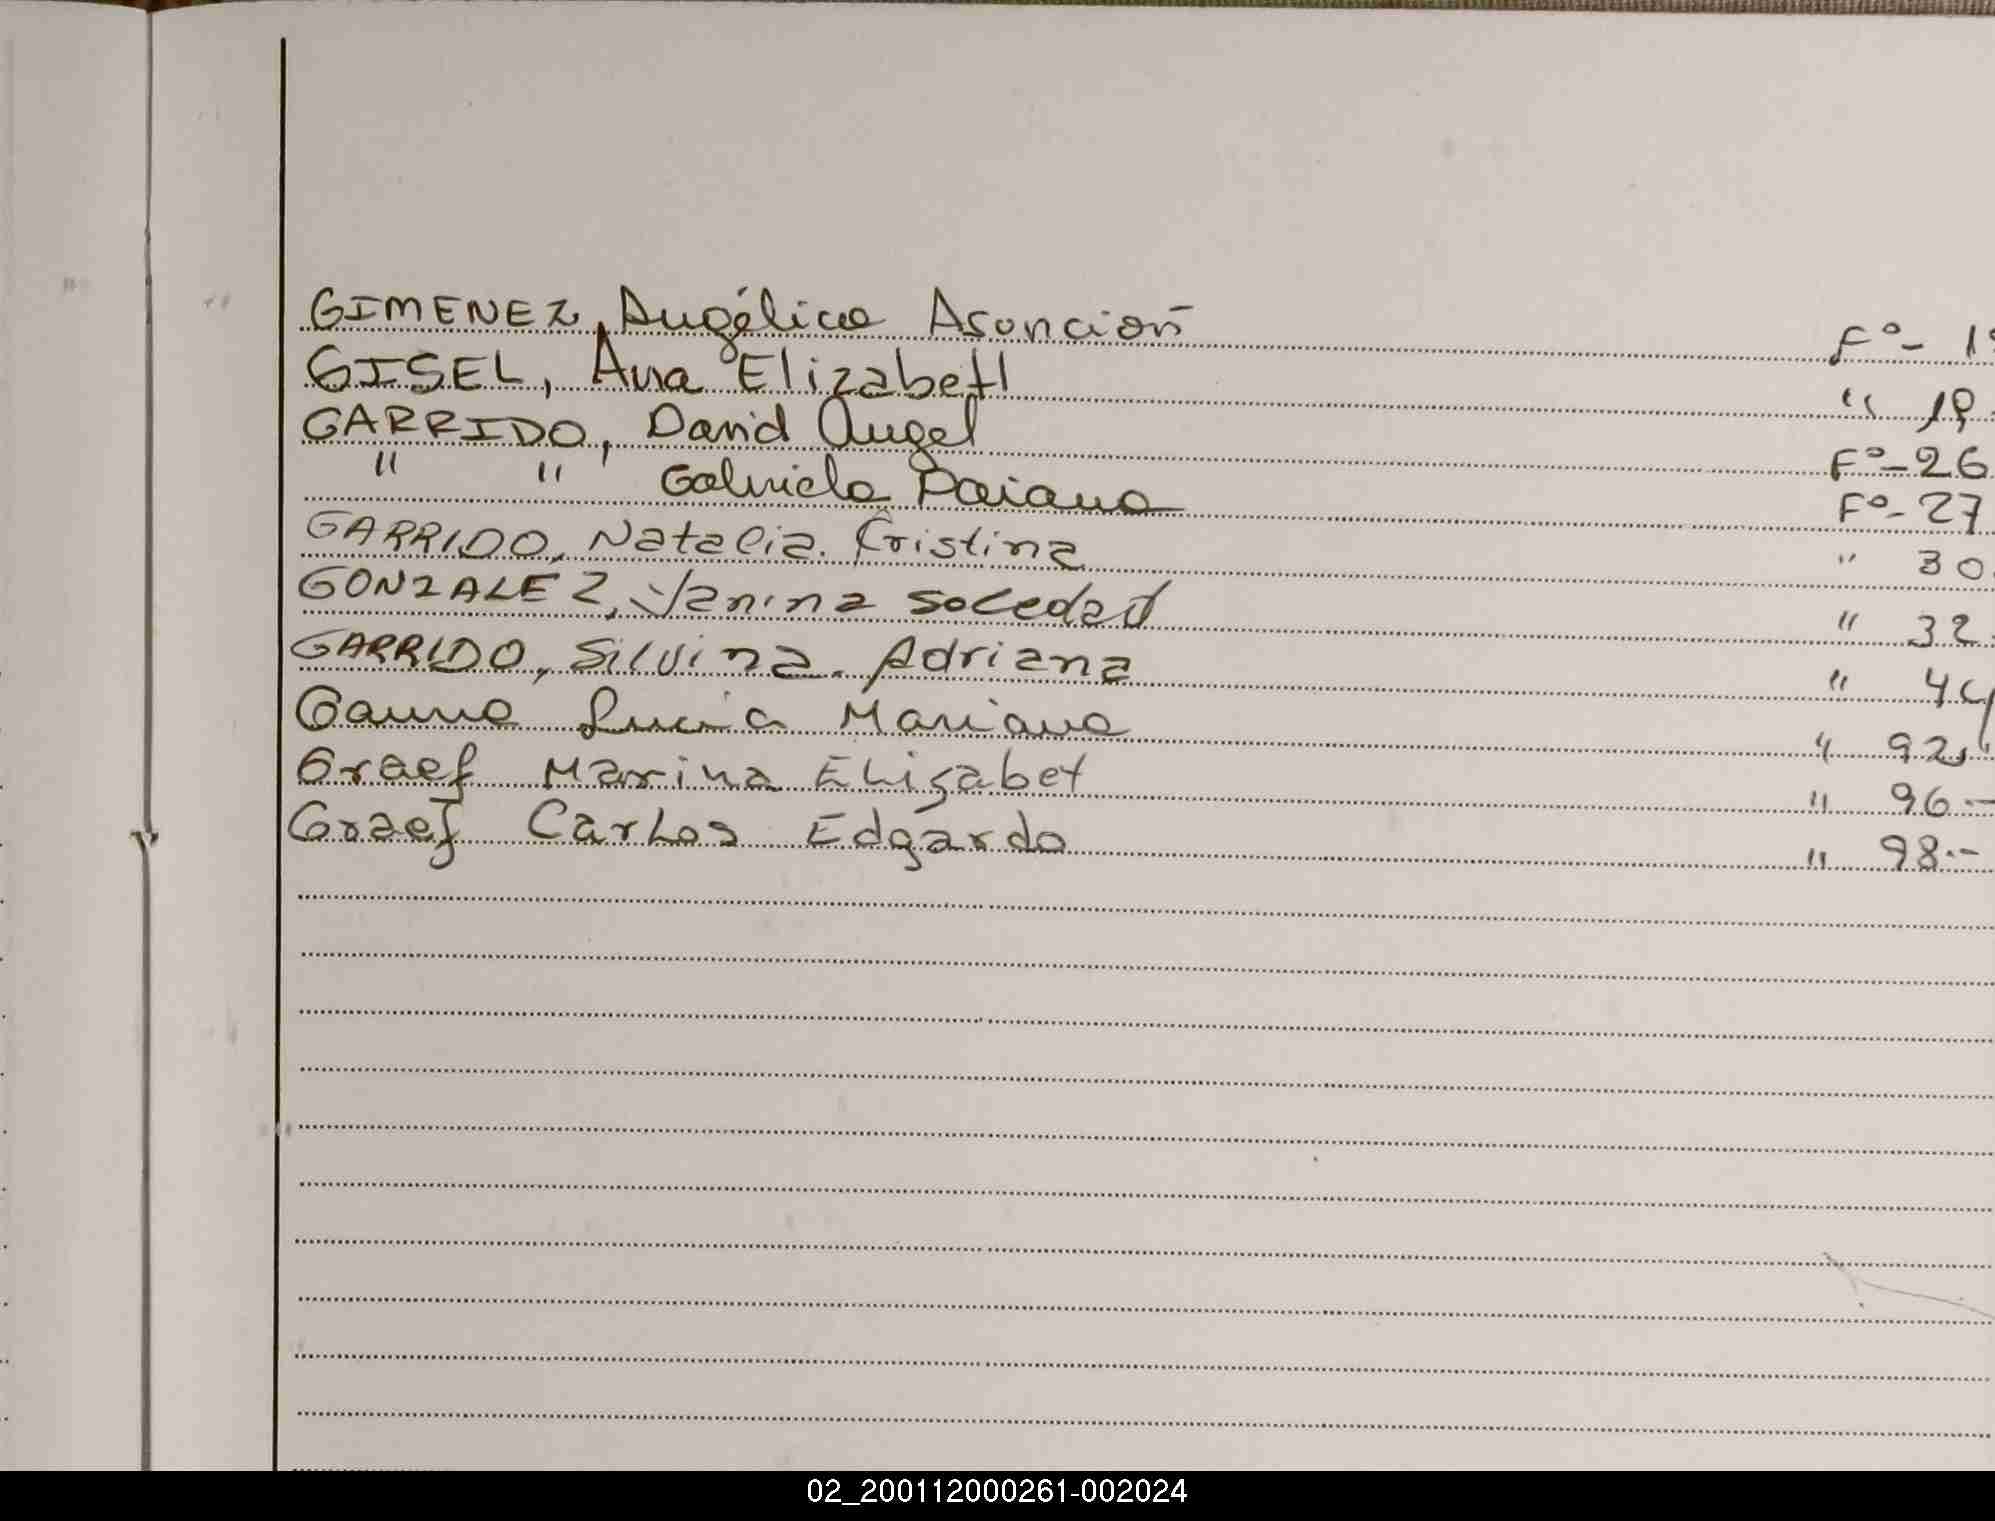 GIMENEZ, Angélica Asunción F°- 1
GISEL, Ana Elizabeth " 19.
GARRIDO, David Angel F°- 26
" " Gabriela Daiana F°- 27
GARRIDO, Natalia. Cristina " 30.
GONZALEZ, Yanina Soledad " 32.
GARRIDO, Silvina. Adriana " 44
Gauna Lucia Mariana " 92.
Graef Marina Elizabet " 96.-
Graef Carlos Edgardo " 98.-
02_200112000261-002024